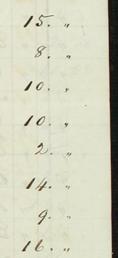 15. "
8. "
10. "
10. "
2. "
14. "
9. "
16. "